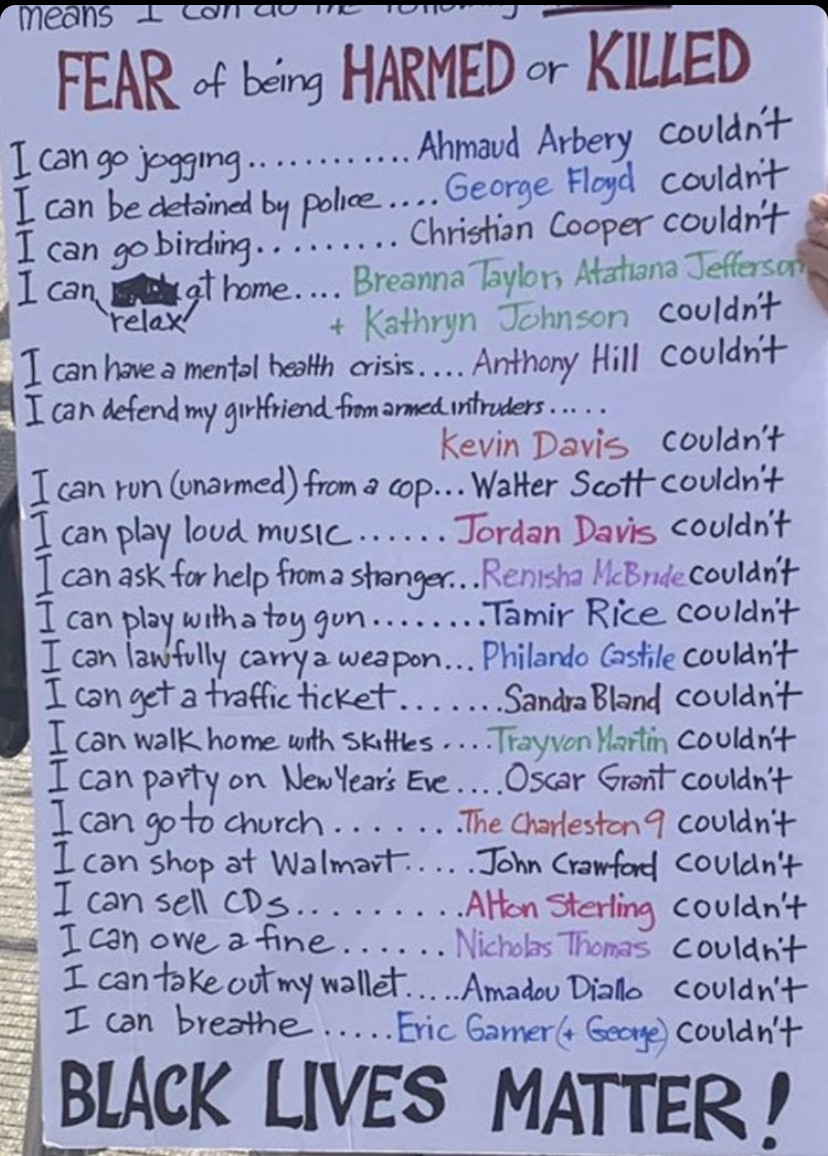 means I can do the following
FEAR of being HARMED or KILLED
I can go jogging............ Ahmaud Arbery couldn't
I can be detained by police.... George Floyd couldn't
I can go birding.......... Christian Cooper couldn't
I can relax at home.... Breanna Taylor, Atatiana Jefferson
+ Kathryn Johnson couldn't
I can have a mental health crisis.... Anthony Hill couldn't
I can defend my girlfriend from armed intruders.....
Kevin Davis couldn't
I can run (unarmed) from a cop... Walter Scott couldn't
I can play loud music...... Jordan Davis couldn't
I can ask for help from a stranger... Renisha McBride couldn't
I can play with a toy gun........ Tamir Rice couldn't
I can lawfully carry a weapon... Philando Castile couldn't
I can get a traffic ticket....... Sandra Bland couldn't
I can walk home with Skittles .... Trayvon Martin couldn't
I can party on New Year's Eve.... Oscar Grant couldn't
I can go to church ....... The Charleston 9 couldn't
I can shop at Walmart..... John Crawford couldn't
I can sell CDs.......... Alton Sterling couldn't
I can owe a fine...... Nicholas Thomas couldn't
I can take out my wallet..... Amadou Diallo couldn't
I can breathe ..... Eric Garner (+ George) couldn't
BLACK LIVES MATTER!